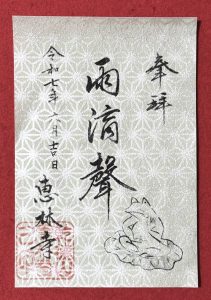 奉拝
雨滴聲
令和七年六月吉日
恵林寺